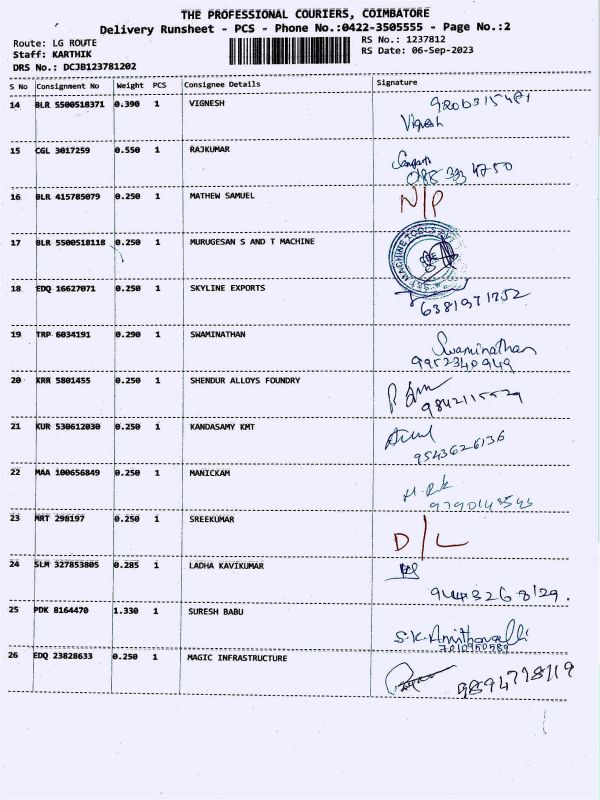 THE PROFESSIONAL COURIERS, COIMBATORE
Delivery Runsheet - PCS - Phone No.:0422-3505555 - Page No.:2
Route: LG ROUTE
RS No.: 1237812
Staff: KARTHIK
RS Date: 06-Sep-2023
DRS No.: DCJB123781202
S No Consignment No Weight PCS Consignee Details Signature
14 BLR 5500518371 0.390 1 VIGNESH
Vignesh
15 CGL 3017259 0.550 1 RAJKUMAR
16 BLR 415785079 0.250 1 MATHEW SAMUEL N/P
17 BLR 5500518118 0.250 1 MURUGESAN S AND T MACHINE
18 EDQ 16627071 0.250 1 SKYLINE EXPORTS
6381971752
19 TRP 6034191 0.290 1 SWAMINATHAN Swaminathan
9952340949
20 KRR 5801455 0.250 1 SHENDUR ALLOYS FOUNDRY
21 KUR 530612030 0.250 1 KANDASAMY KMT
9543626136
22 MAA 100656849 0.250 1 MANICKAM
9790143543
23 MRT 298197 0.250 1 SREEKUMAR D/L
24 SLM 327853805 0.285 1 LADHA KAVIKUMAR
9443268129.
25 PDK 8164470 1.330 1 SURESH BABU
7010950589
26 EDQ 23828633 0.250 1 MAGIC INFRASTRUCTURE
9894718119